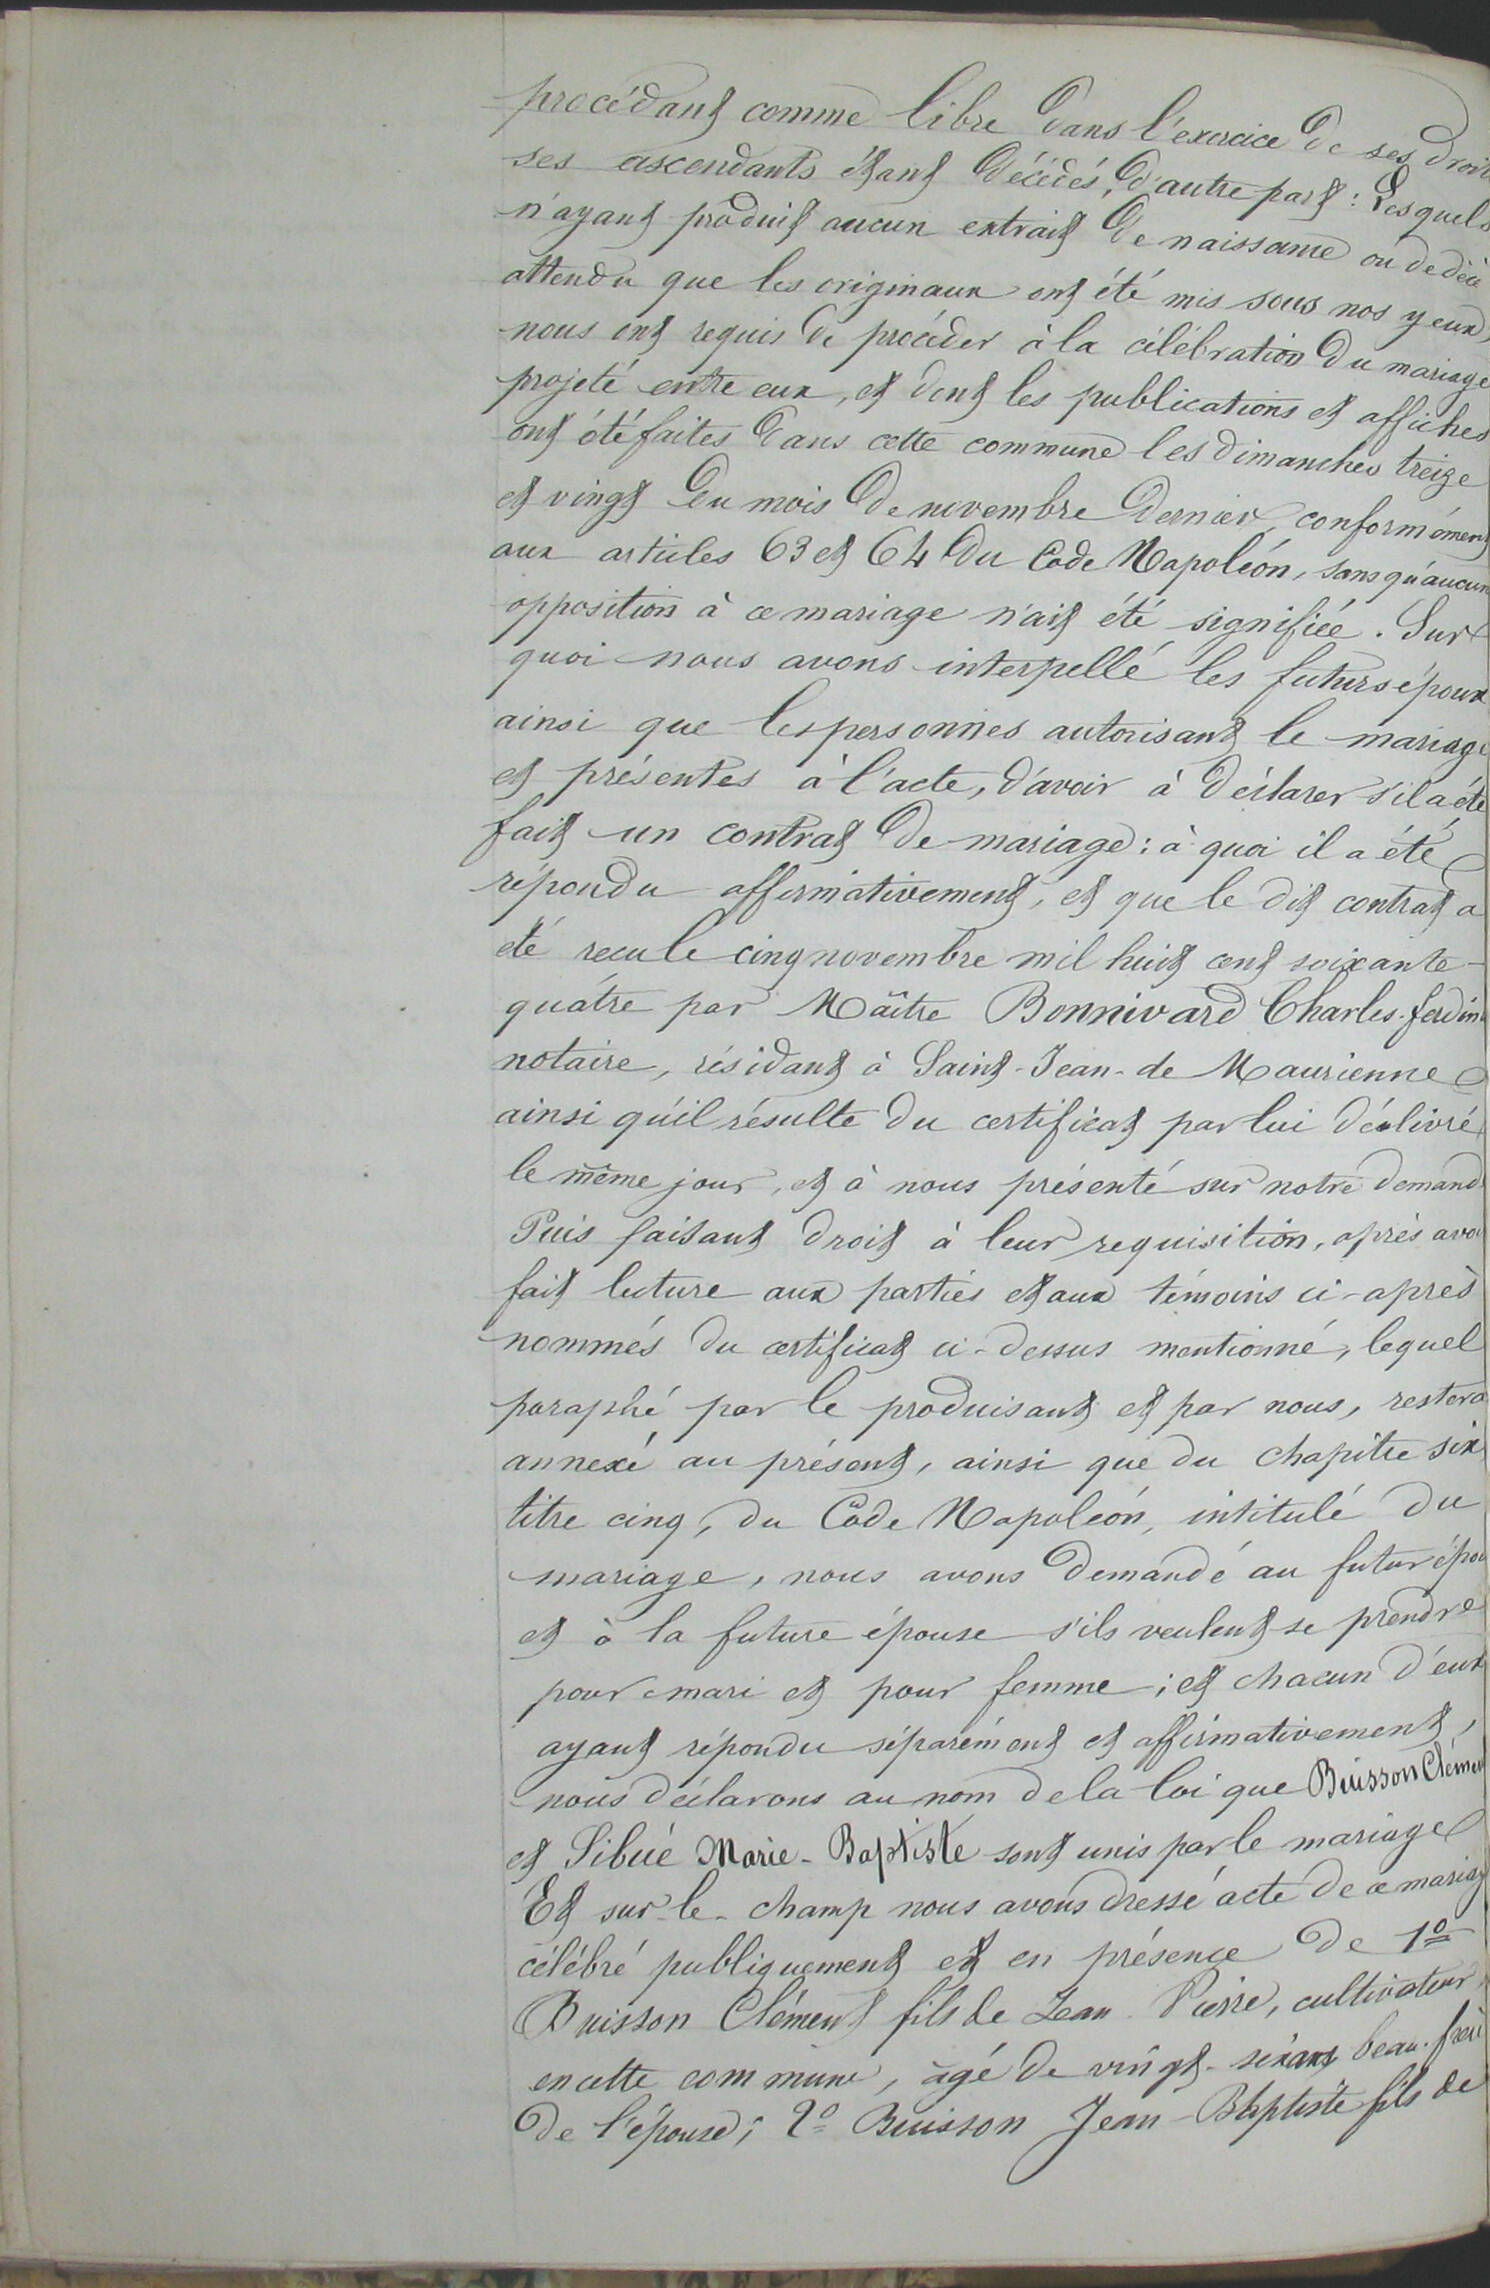 procédant comme libre dans l'exercice de ses droits
ses ascendants étant décédés, d'autre part : Lesquels
n'ayant produit aucun extrait de naissance ou de décè
attendu que les originaux ont été mis sous nos yeux,
nous ont requis de procéder à la célébration du mariage
projeté entre eux, et dont les publications et affiches
ont été faites dans cette commune les dimanches treize
et vingt du mois de novembre dernier, conformément
aux articles 63 et 64 du Code Napoléon, sans qu'aucun
opposition à ce mariage n'ait été signifiée. Sur
quoi nous avons interpellé les futurs époux
ainsi que les personnes autorisant le mariage
et présentes à l'acte, d'avoir à déclarer s'il a été
fait un contrat de mariage : à quoi il a été
répondu affirmativement, et que le dit contrat a
été reçu le cinq novembre mil huit cent soixante-
quatre par Maître Bonnivard Charles-ferdin
notaire, résidant à Saint-Jean-de Maurienne
ainsi qu'il résulte du certificat par lui délivré
le même jour, et à nous présenté sur notre demand
Puis faisant droit à leur requisition, après avoi
fait lecture aux parties et aux témoins ci-après
nommés du certificat ci-dessus mentionné, lequel
paraphé par le produisant et par nous, restera
annexé au présent, ainsi que du chapitre six
titre cinq, du Code Napoléon, intitulé du
mariage, nous avons demandé au futur épou
et à la future épouse s'ils veulent se prendre
pour mari et pour femme ; et chacun d'eux
ayant répondu séparément et affirmativement,
nous déclarons au nom de la loi que Buisson Clément
et Sibué Marie-Baptiste sont unis par le mariage
Et sur-le-champ nous avons dressé acte de ce mariag
célébré publiquement et en présence de 1º
Buisson Clément fils de Jean Pierre, cultivateur
en cette commune, âgé de vingt-six ans beau-frère
de l'épouse ; 2º Buisson Jean-Baptiste fils de